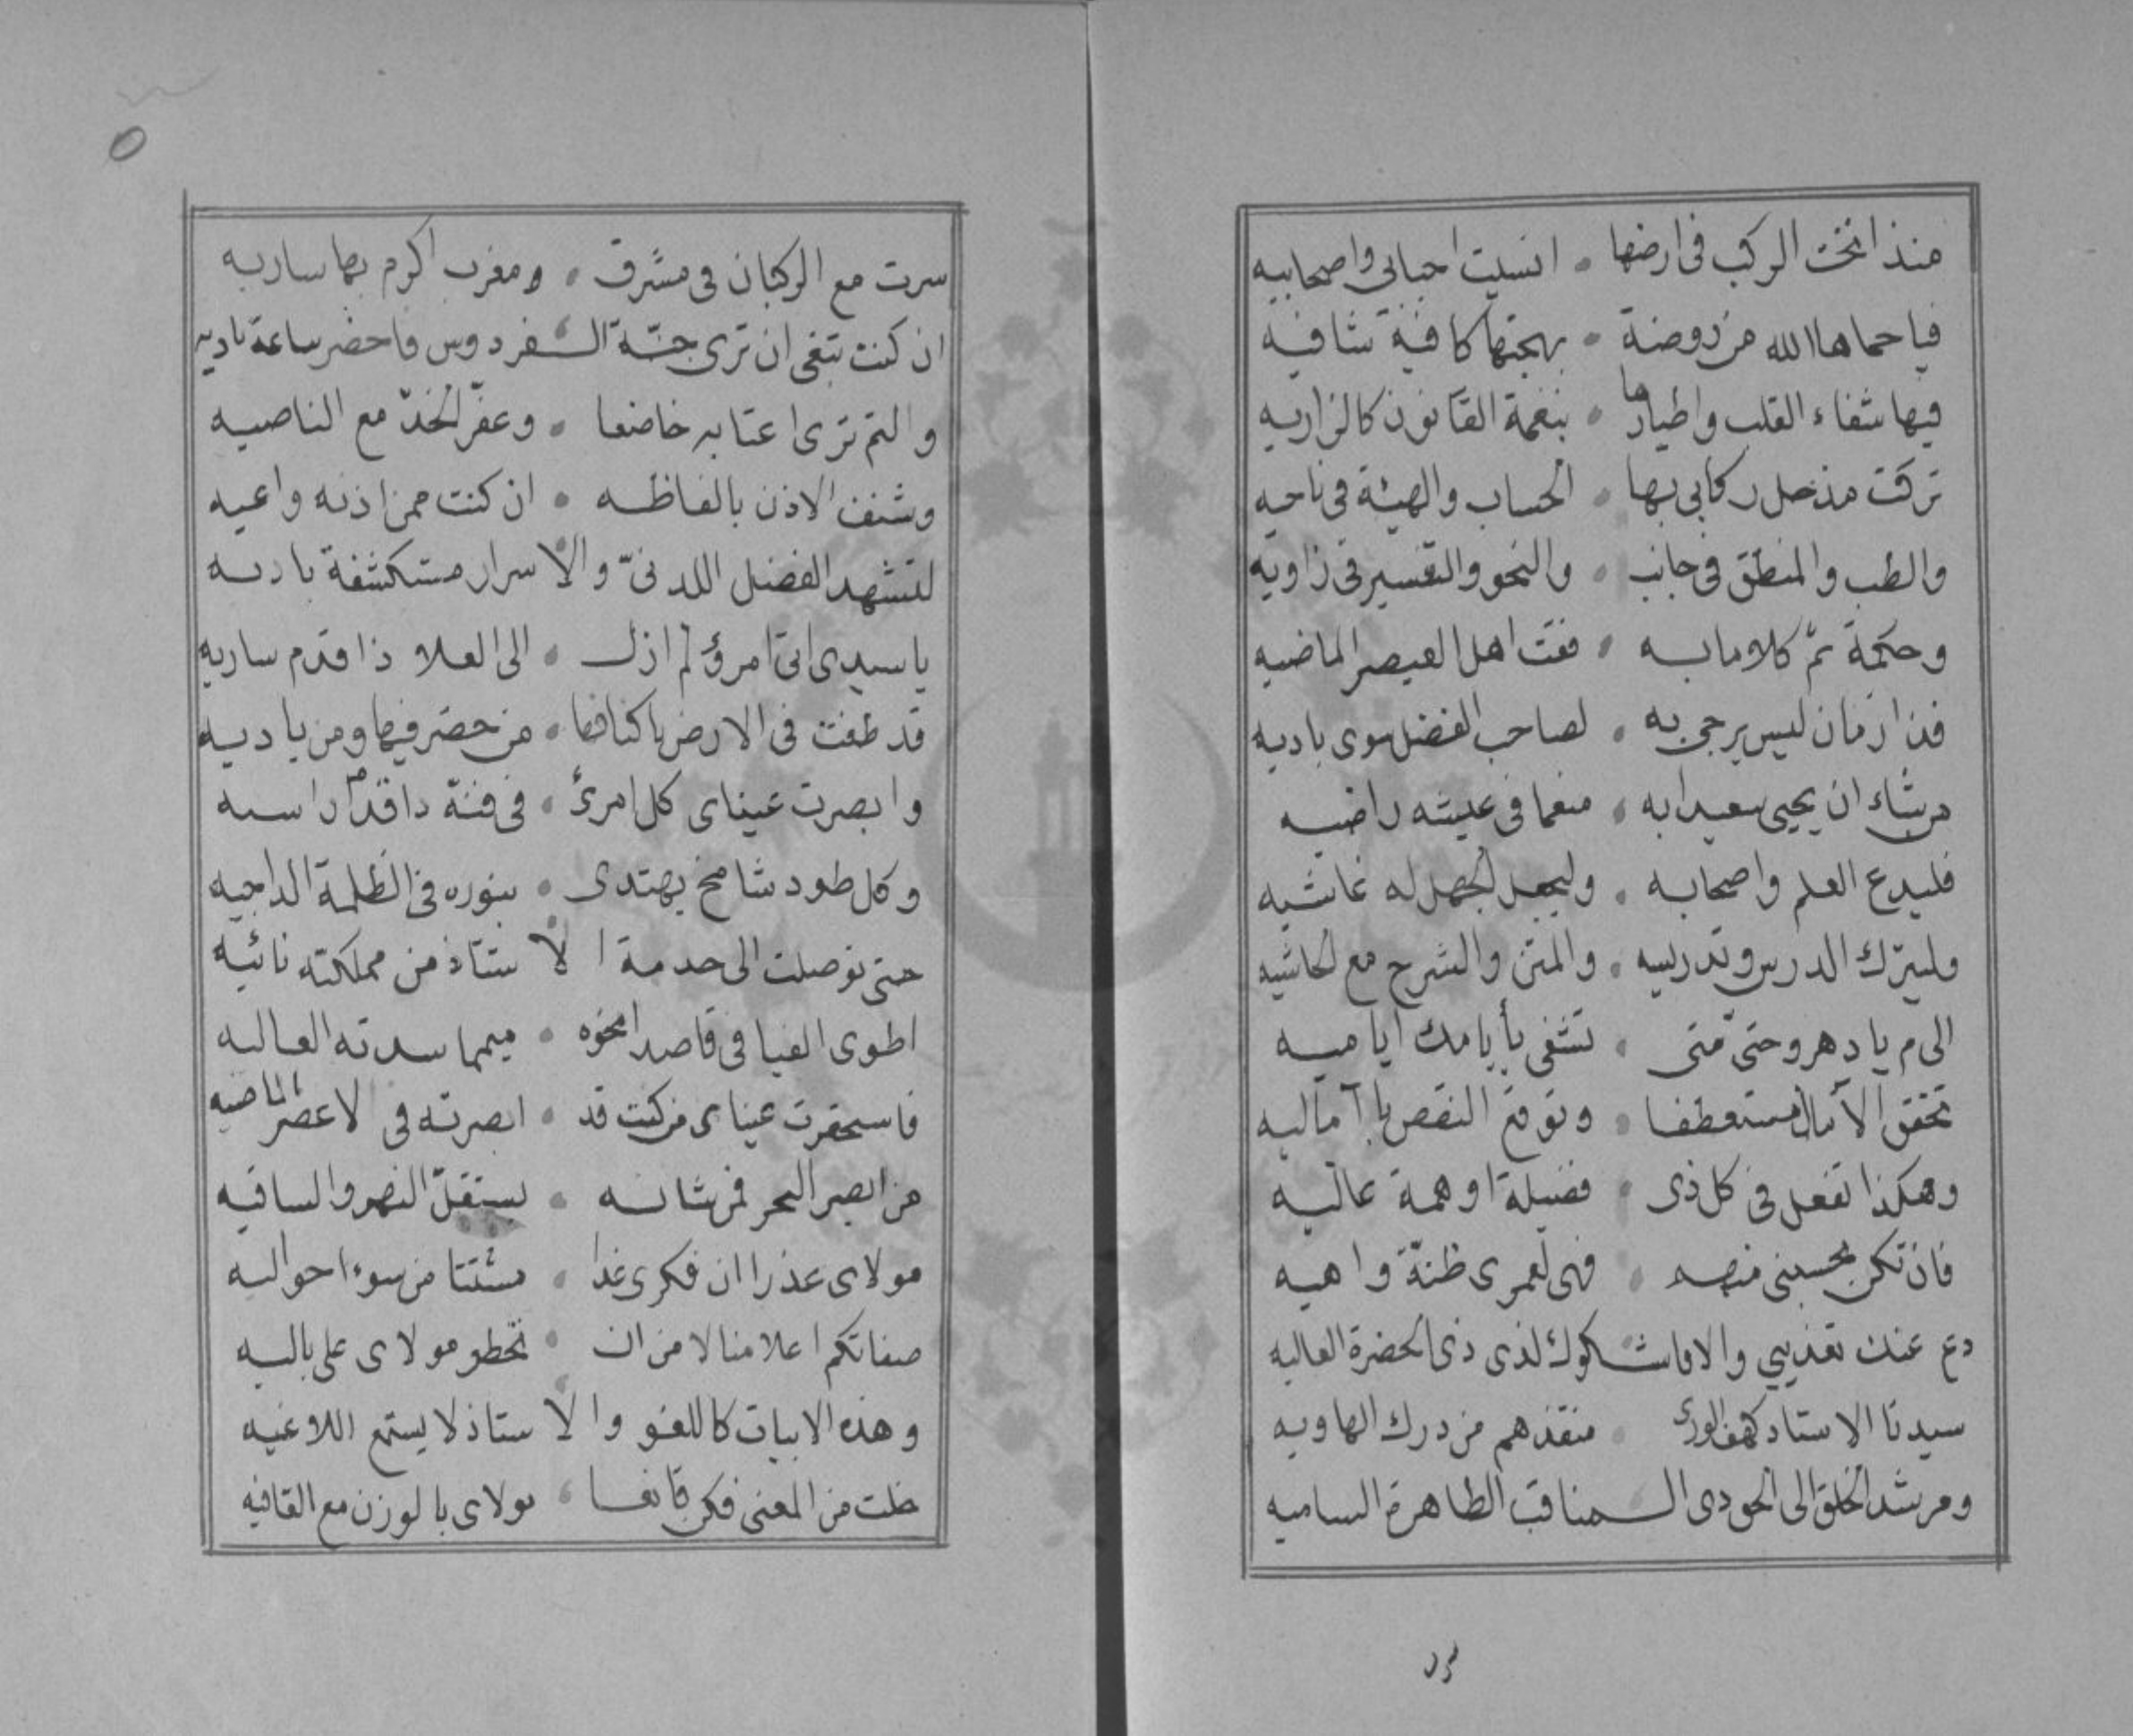 منذ انخت الركب فى ارضها • انسيت احبابى واصحابيه
فيا حماها الله من روضة • بهجتها كافية شافيه
فيها شفاء القلب واطيارها • بنغمة القانون كالزاريه
تركت مذ حل ركابى بها • الحساب والهيئة فى ناحيه
والطب والمنطق فى جانب • والنحو والتفسير فى زاويه
وحكمة ثم كلاما به • فقت اهل العصر الماضيه
فذا زمان ليس يرجى به • لصاحب الفضل سوى باديه
من شاء ان يحيى سعيدا به • منعما فى عيشه راضيه
فليدع العلم واصحابه • وليجعل الجهل له غاشيه
وليترك الدرس وتدريسه • والمتن والشرح مع الحاشيه
الى م يا دهر وحتى متى • تشفى بأيامك اياميه
تحقق الآمال مستعطفا • وتوقع النقص بآماليه
وهكذا تفعل فى كل ذى • فضيلة او همة عاليه
فان تكن تحسبنى منهم • فهى لعمرى ظنة واهيه
دع عنك تعذيبى والا فاشكوك لذى ذى الحضرة العاليه
سيدنا الاستاد كهف الورى • منقذهم من درك الهاويه
ومرشد الخلق الى الحق ذى المناقب الطاهرة الساميه
سرت مع الركبان فى مشرق • ومغرب اكرم بها ساريه
ان كنت تبغى ان ترى جنة الفردوس فاحضر ساعة ناديه
والتم ترى اعتابه خاضعا • وعفر الخد مع الناصيه
وشنف الاذن بالفاظه • ان كنت ممن اذنه واعيه
لتشهد الفضل اللدنىّ والاسرار مستكشفة باديه
يا سيدى انى امرؤ لم ازل • الى العلا ذا قدم ساريه
قد طفت فى الارض باكنافها • من حضر فيها ومن باديه
وابصرت عيناى كل امرئ • فى فنه ذا قدم راسيه
وكل طود شامخ يهتدى • بنوره فى الظلمة الداجيه
حتى توصلت الى خدمة الاستاذ من مملكته نائيه
اطوى الفيافى قاصدا نحوه • ميمما سدته العاليه
فاستحقرت عيناى من كنت قد • ابصرته فى الاعصر الماضيه
من ابصر البحر فمن شانه • يستقلّ النهر والساقيه
مولاى عذرا ان فكرى غدا • مشتتا من سوء احواليه
صفاتكم اعلامنا لا من ان • تخطر مولاى على باليه
وهذه الابيات كاللغو والاستاذ لا يستمع اللاغيه
خلت من المعنى فكن قانعا • مولاى بالوزن مع القافيه